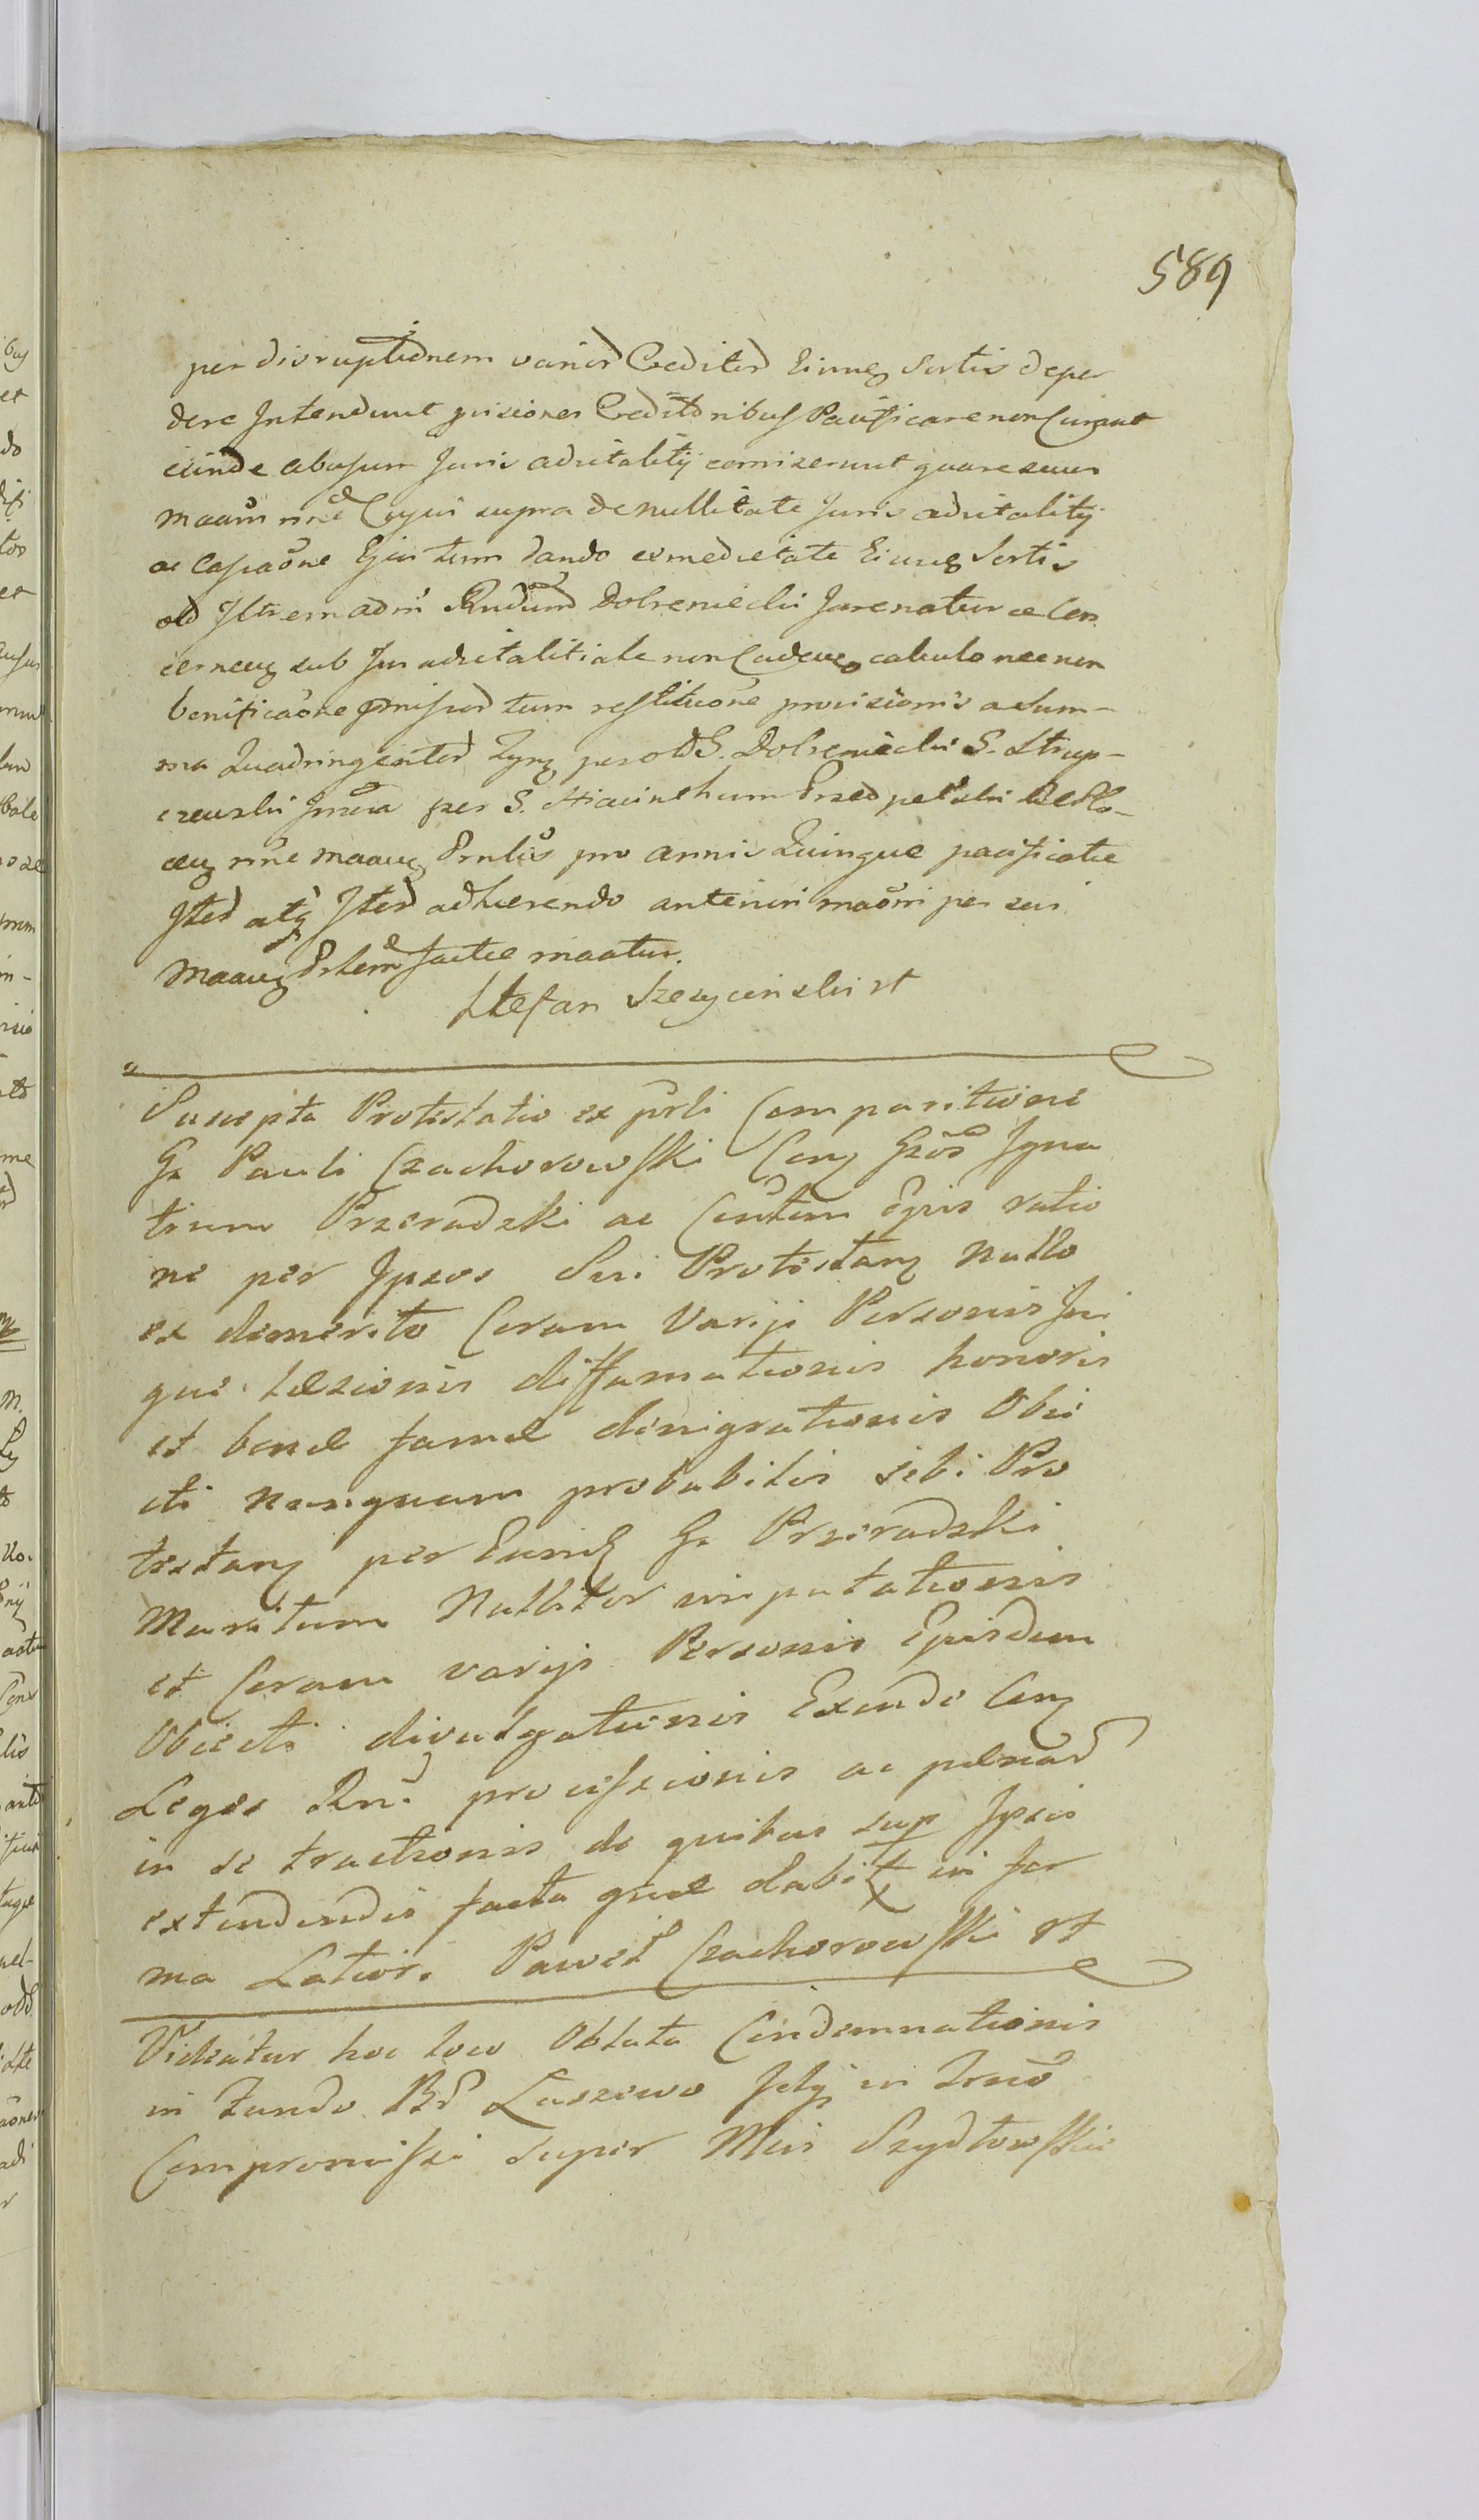 589
per disruptionem varior Creditor Eiusq Sortis deper
dere Intendunt prisiones Creditoribus Pacificare non Curant
exinde abusum Juris advitalitij comiserunt quare suum
maaum rne Cujus supra de nullitate Juris advitalitij
ac Cassaone Ejus tum dando ex medietate Eiusq Sortis
old Jltrem adm Rudum Dobrenieclii Jure natur ae Con
cerneuq sub Jus advitalitiale non Cadeuq calculo nec non
bonificaone tum restitucone provisionis a Sum-
ma Quadringentor per old S. Dobreniecki S. Strup-
czewski per S. Hiacinthum Przedpelski
rne maaug Prntis pro annis Quinque pacificatae
Jted atq Jted adhaerendo anteriori maoni per sui
maaug factae maatur.
Stefan Szczycinski st
Suscepta Protestatio ex prli Comparitione
Gr Pauli Czachorowski Conq Gros Igna
tium Przeradzki ac Contem Ejus ratio
ne per Ipsos Sui Protestanq Nullo
ex demerito Coram Varijs Personis Ini
que laesionis diffamationis honoris
et bonae famae denigrationis Obie
cti nunquam probabilis sibi Pro
testanq per Eunq Gr Przeradzki
Maritum Nulliter imputationis
et Coram varijs Personis Ejusdem
Obiecti divulgationis Exinde Conq
Leges Rni processionis ac paenar
in se tractionis de quibus sup Ipsis
extendendis facta quae dabit in for
ma Latior. Paweł Czachorowski st
Videatur hoc loco Oblata Condemnationis
in fundo Bd Łuszewo
Compromissi super Mus Szydłowskie